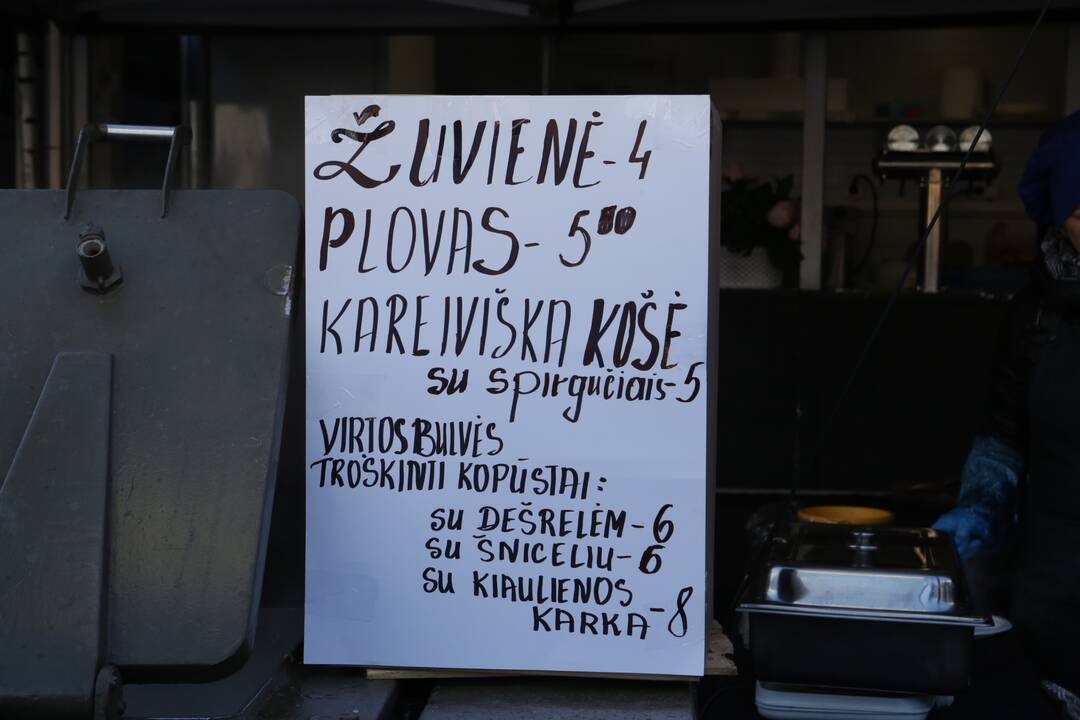 ŽUVIENĖ-4
PLOVAS- 5⁰⁰
KAREIVIŠKA KOŠĖ
su spirgučiais-5
VIRTOS BULVĖS
TROŠKINTI KOPŪSTAI:
SU DEŠRELĖM-6
SU ŠNICELIU-6
SU KIAULIENOS
KARKA-8